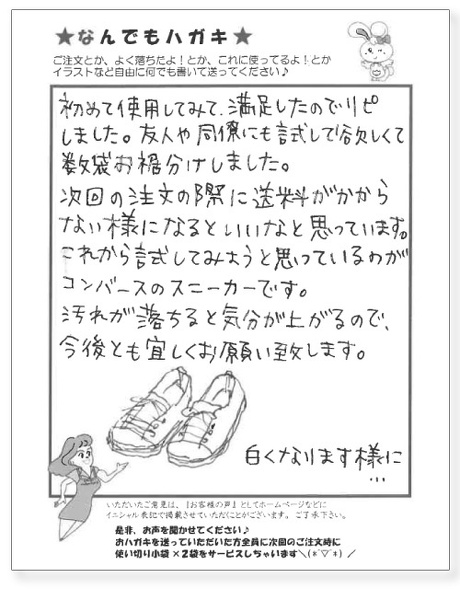 ★なんでもハガキ★
ご注文とか、よく落ちたよ!とか、これに使ってるよ!とか
イラストなど自由に何でも書いて送ってください♪
初めて使用してみて、満足したのでリピ
しました。友人や同僚にも試して欲しくて
数袋お裾分けしました。
次回の注文の際に送料がかから
ない様になるといいなと思っています。
これから試してみようと思っているのが
コンバースのスニーカーです。
汚れが落ちると気分が上がるので、
今後とも宜しくお願い致します。
白くなります様に
...
いただいたご意見は、『お客様の声』としてホームページなどに
イニシャル表記で掲載させていただくことがございます。ご了承下さい。
是非、お声を聞かせてください♪
おハガキを送っていただいた方全員に次回のご注文時に
使い切り小袋×2袋をサービスしちゃいます＼(*´▽`*)／